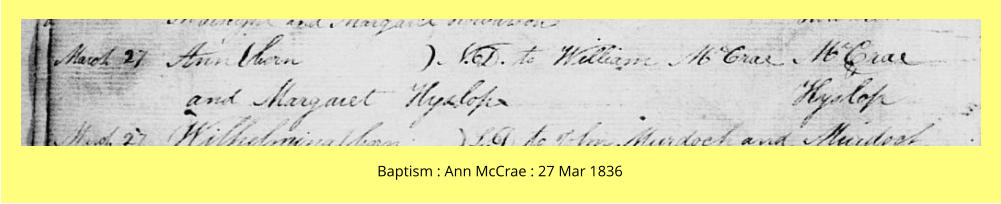 and Margaret
March 27 Ann (born ) L.D. to William McCrae McCrae
and Margaret Hyslop Hyslop
March 27 Wilhelmina (born ) L.D. to Murdoch and Murdoch
Baptism : Ann McCrae : 27 Mar 1836